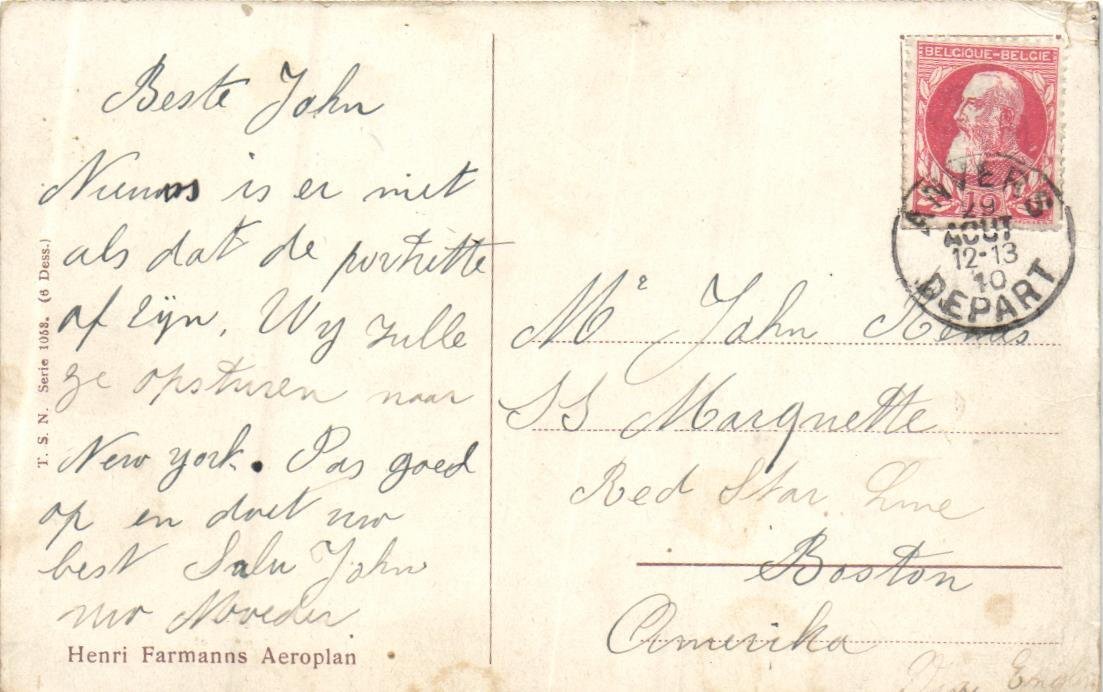 Beste John
Nieuws is er niet
als dat de portrette
af zijn. Wij zulle
ze opsturen naar
New york. Pas goed
op en doet uw
best Salu John
uw Moeder
Henri Farmanns Aeroplan
T. S. N. Serie 1058. (6 Dess.)
BELGIQUE-BELGIE
ANVERS
19
AOUT
12-13
10
DEPART
Mr John
SS Marquette
Red Star Line
Boston
Amerika